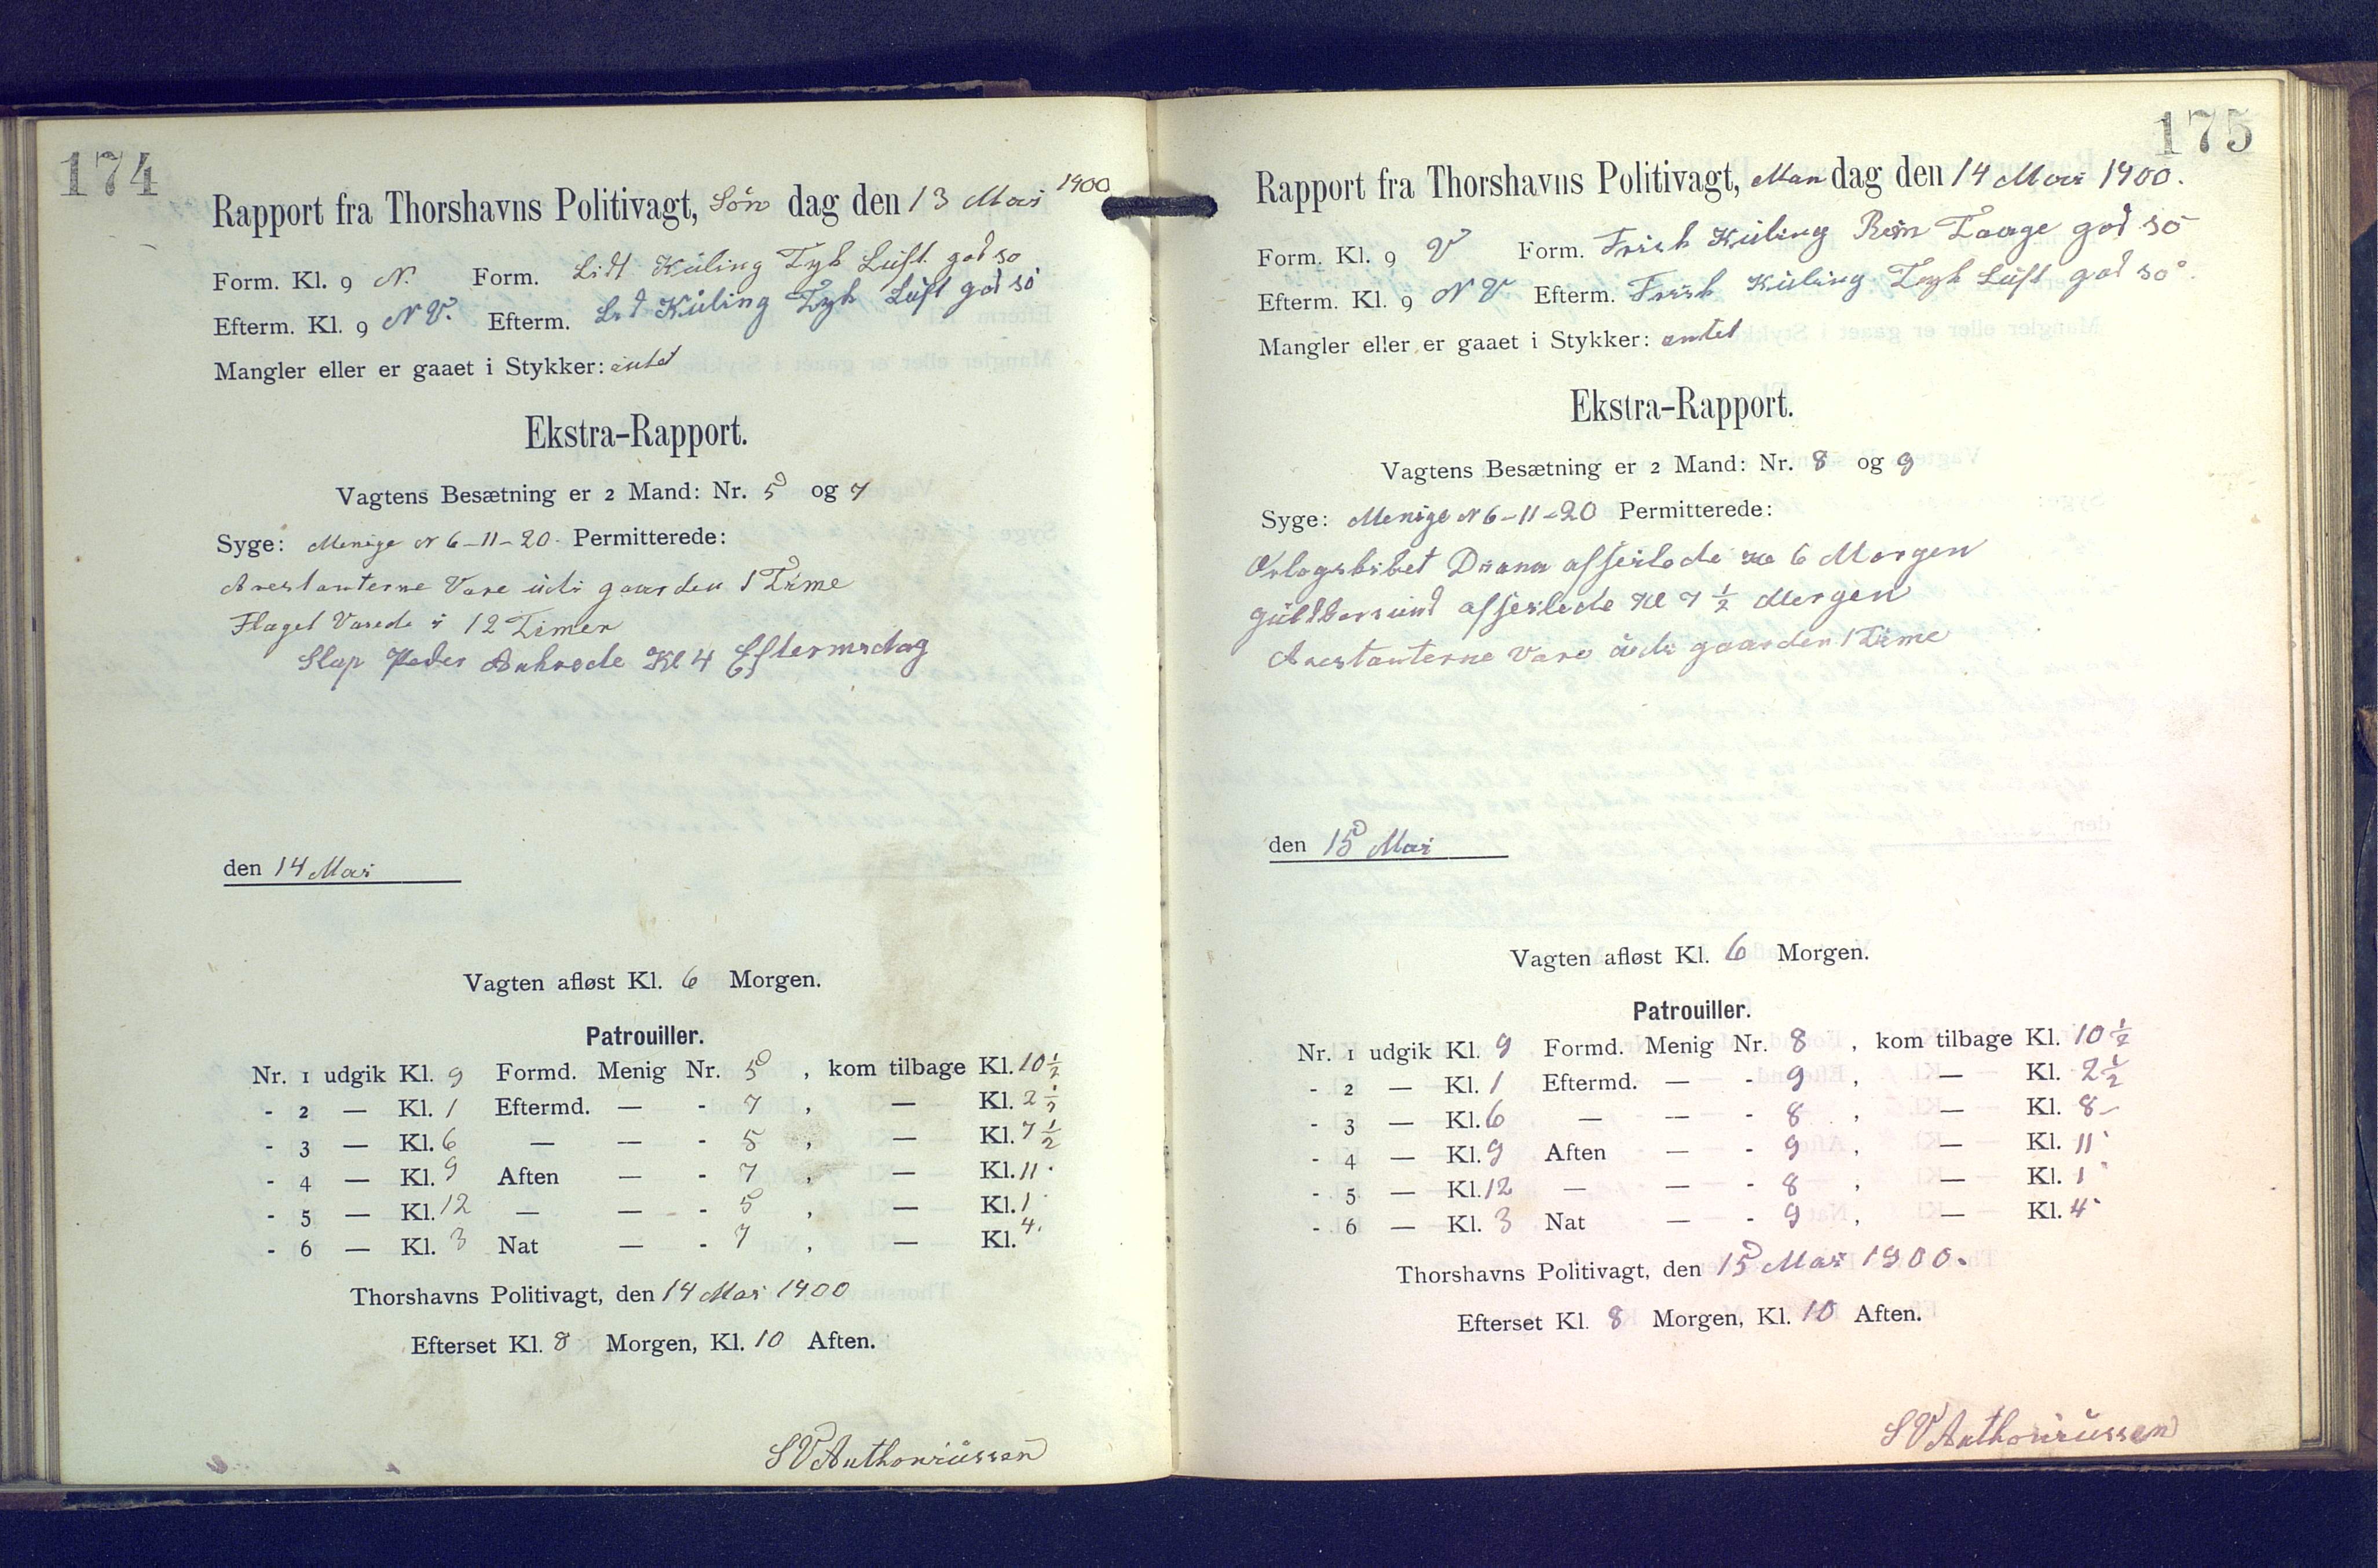 174
Rapport fra Thorshavns Politivagt, Søn dag den 13 Mai 1900
Form. Kl. 9 N. Form. Lidt Kuling Tyk Luft god so
Efterm. Kl. 9 N V. Efterm. Lidt Kuling Tyk Luft god so
Mangler eller er gaaet i Stykker: intet
Ekstra-Rapport.
Vagtens Besætning er 2 Mand: Nr. 5 og 7
Syge: Menige N 6-11-20. Permitterede:
Arestanterne Vare udi gaarden 1 Time
Flaget Varede i 12 Timer
Slup Peder Ankrede Kl 4 Eftermidag
den 14 Mai
Vagten afløst Kl. 6 Morgen.
Patrouiller.
Nr. 1 udgik Kl. 9 Formd. Menig Nr. 5, kom tilbage Kl. 10 ½
- 2 — Kl. 1 Eftermd. — - 7, — Kl. 2 ½
- 3 — Kl. 6 — — - 5, — Kl. 7 ½
- 4 — Kl. 9 Aften — - 7, — Kl. 11
- 5 — Kl. 12 — — - 5, — Kl. 1
- 6 — Kl. 3 Nat — - 7, — Kl. 4.
Thorshavns Politivagt, den 14 Mai 1900
Efterset Kl. 8 Morgen, Kl. 10 Aften.
S V Anthoniussen
175
Rapport fra Thorshavns Politivagt, Man dag den 14 Mai 1900.
Form. Kl. 9 V Form. Frisk Kuling Rein Taage god so
Efterm. Kl. 9 N V Efterm. Frisk Kuling Tyk Luft god so
Mangler eller er gaaet i Stykker: intet
Ekstra-Rapport.
Vagtens Besætning er 2 Mand: Nr. 8 og 9
Syge: Menige N 6-11-20 Permitterede:
Orlogskibet Diana afseilede Kl 6 Morgen
Guldborsund afseilede Kl 7 ½ Morgen
Arestanterne Vare udi gaarden 1 Time
den 15 Mai
Vagten afløst Kl. 6 Morgen.
Patrouiller.
Nr. 1 udgik Kl. 9 Formd. Menig Nr. 8, kom tilbage Kl. 10 ½
- 2 — Kl. 1 Eftermd. — - 9, — Kl. 2 ½
- 3 — Kl. 6 — — - 8, — Kl. 8-
- 4 — Kl. 9 Aften — - 9, — Kl. 11
- 5 — Kl. 12 — — - 8, — Kl. 1
- 6 — Kl. 3 Nat — - 9, — Kl. 4
Thorshavns Politivagt, den 15 Mai 1900.
Efterset Kl. 8 Morgen, Kl. 10 Aften.
S V Anthoniussen